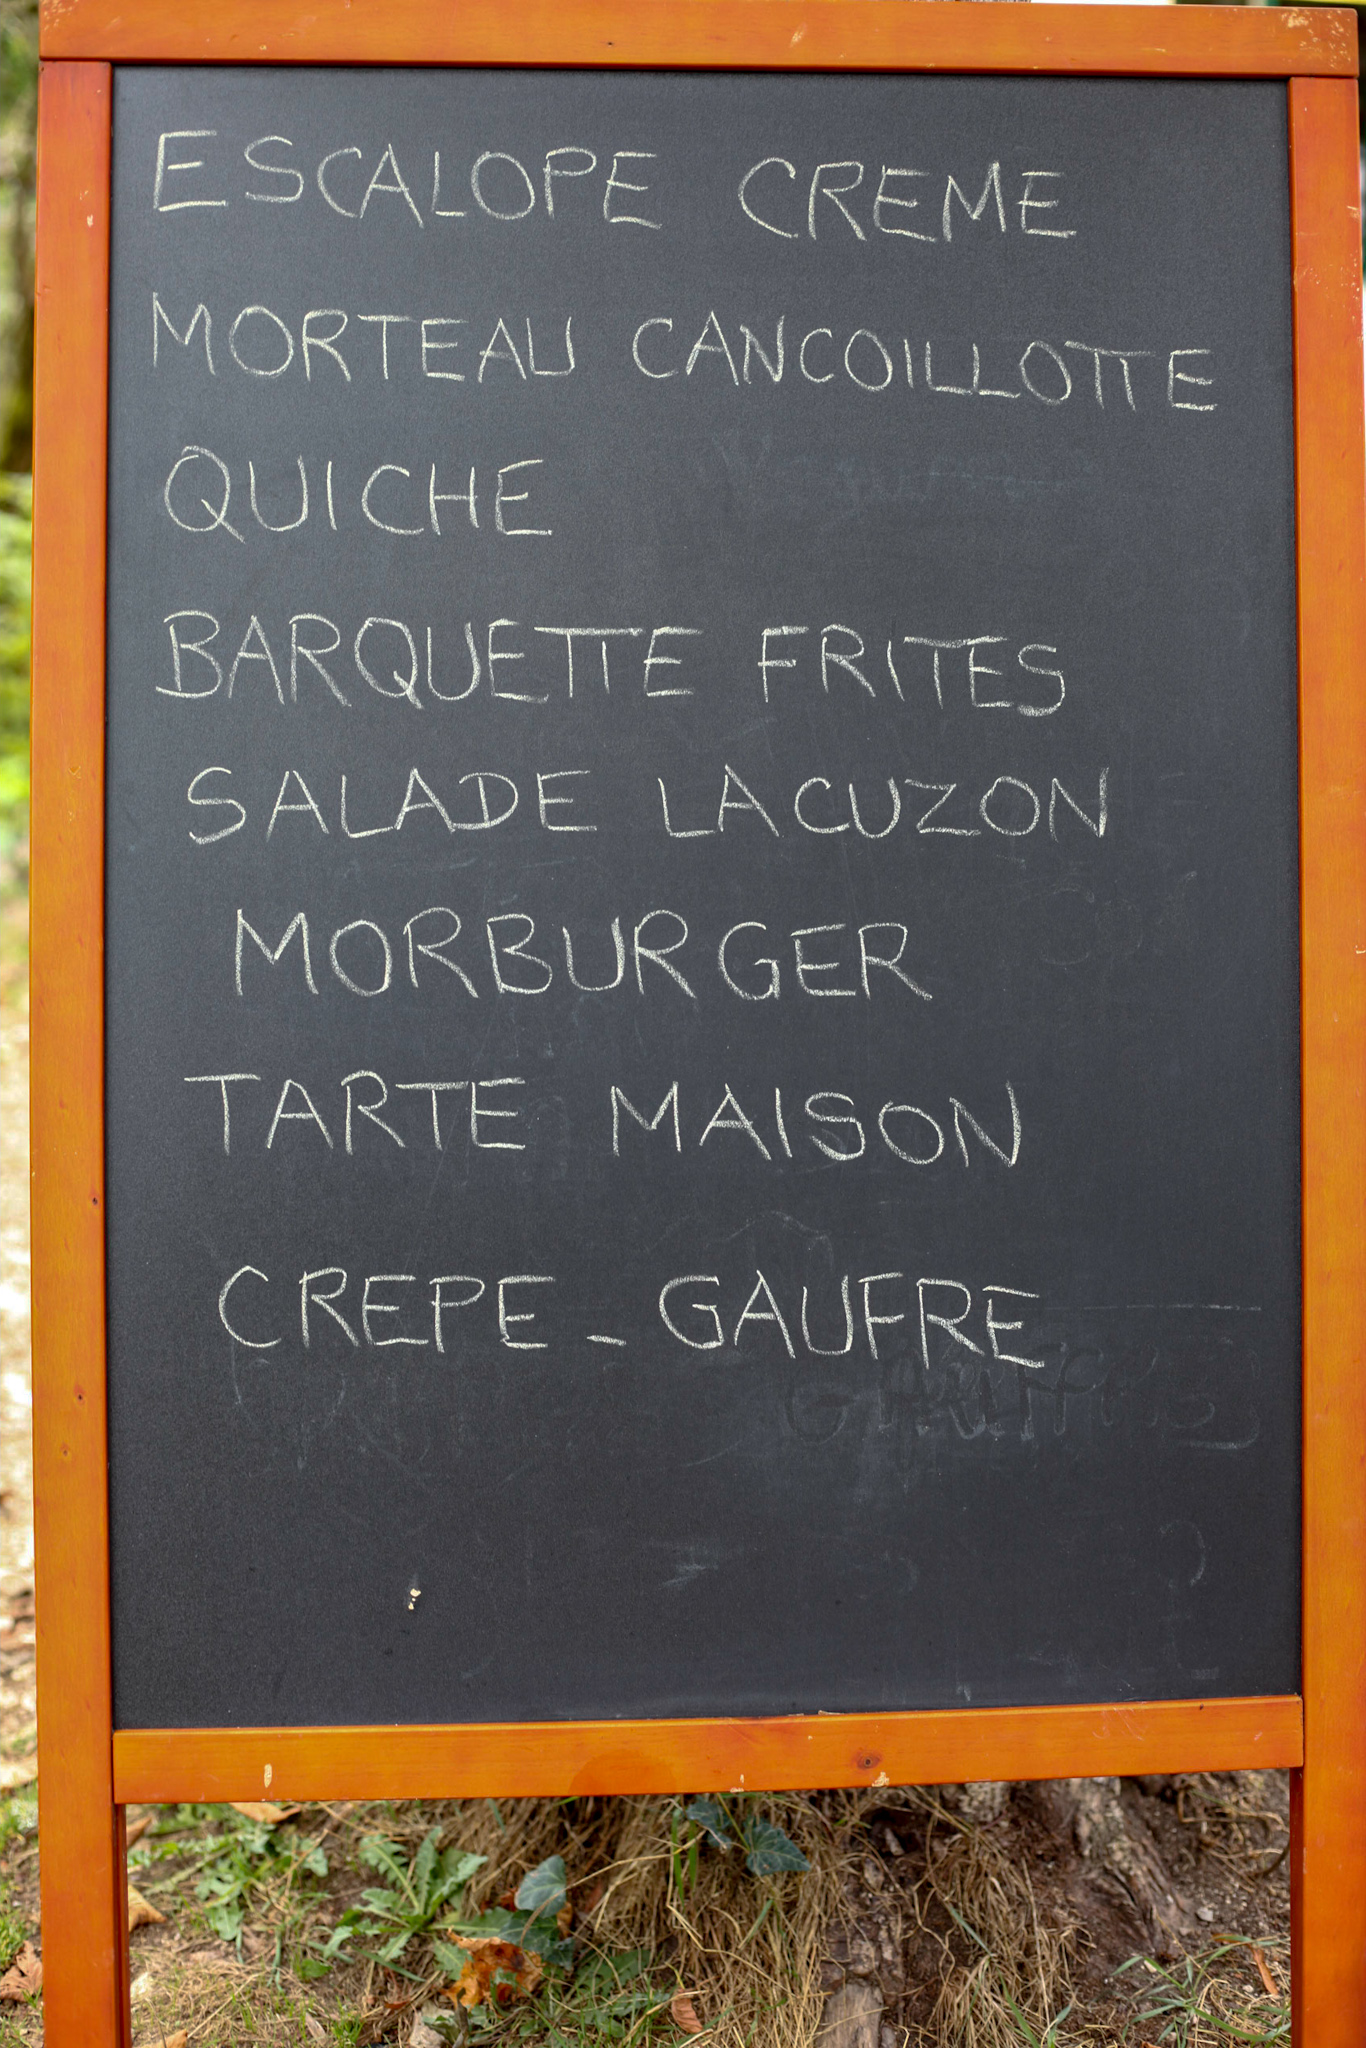 ESCALOPE CREME
MORTEAU CANCOILLOTTE
QUICHE
BARQUETTE FRITES
SALADE LACUZON
MORBURGER
TARTE MAISON
CREPE - GAUFRE